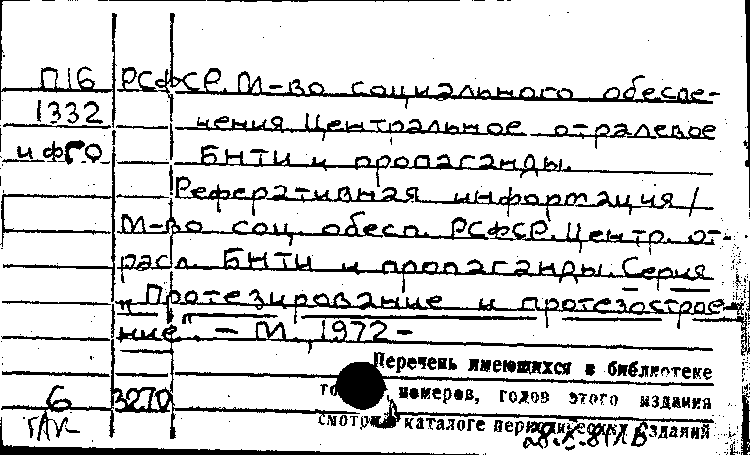 П16 РСФСР. М-во социального обеспе-
1332 чения. Центральное отралевое
и фГО БНТИ и пропаганды.
Реферативная информация /
М-во соц. обесп. РСФСР. Центр. от-
расл. БНТИ и пропаганды. Серия
"Протезирование и протезострое-
ние". – М., 1972 –
Перечень имеющихся в библиотеке
номеров, годов этого издания
6 3270
смотри каталоге периодических изданий